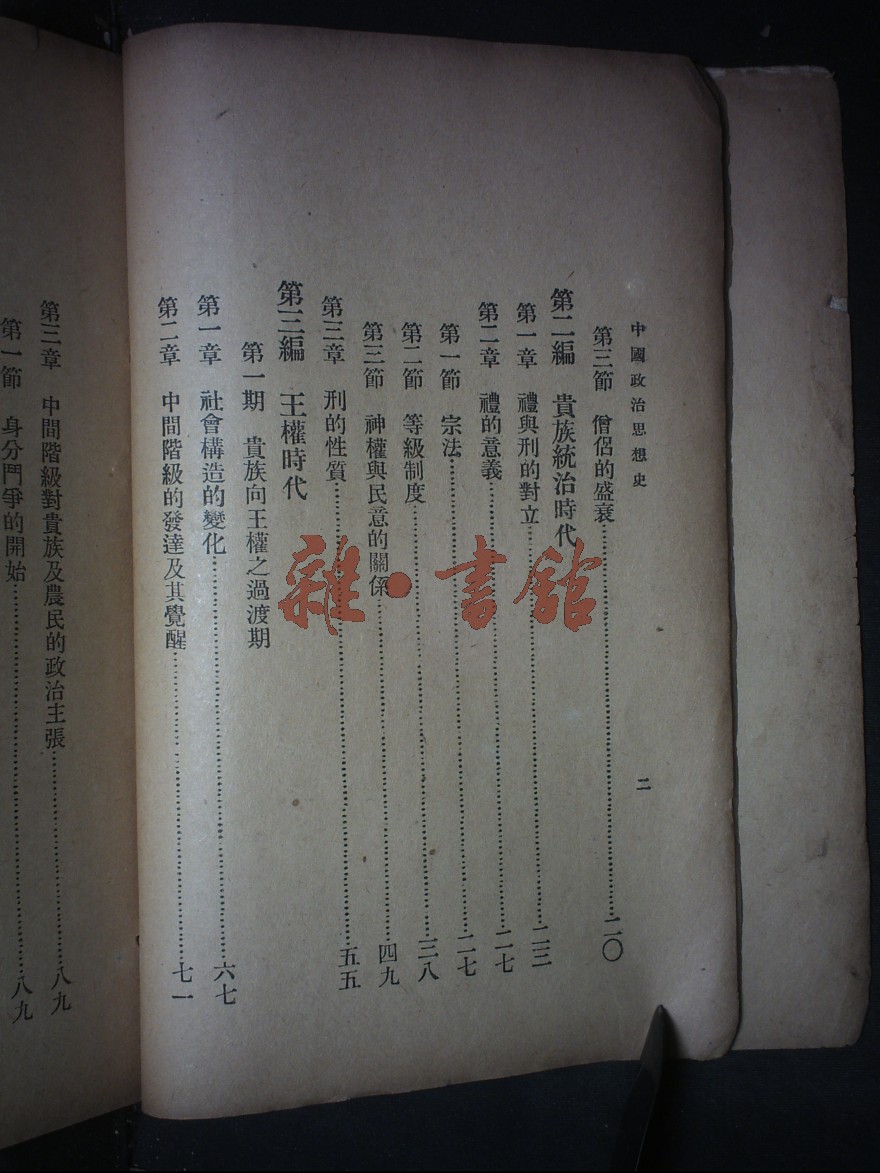 中國政治思想史
二
第三節 僧侶的盛衰……二〇
第二編 貴族統治時代
第一章 禮與刑的對立……二三
第二章 禮的意義……二七
第一節 宗法……二七
第二節 等級制度……三八
第三節 神權與民意的關係……四九
第三章 刑的性質……五五
第三編 王權時代
第一期 貴族向王權之過渡期
第一章 社會構造的變化……六七
第二章 中間階級的發達及其覺醒……七一
第三章 中間階級對貴族及農民的政治主張……八九
第一節 身分鬥爭的開始……八九
雜·書館